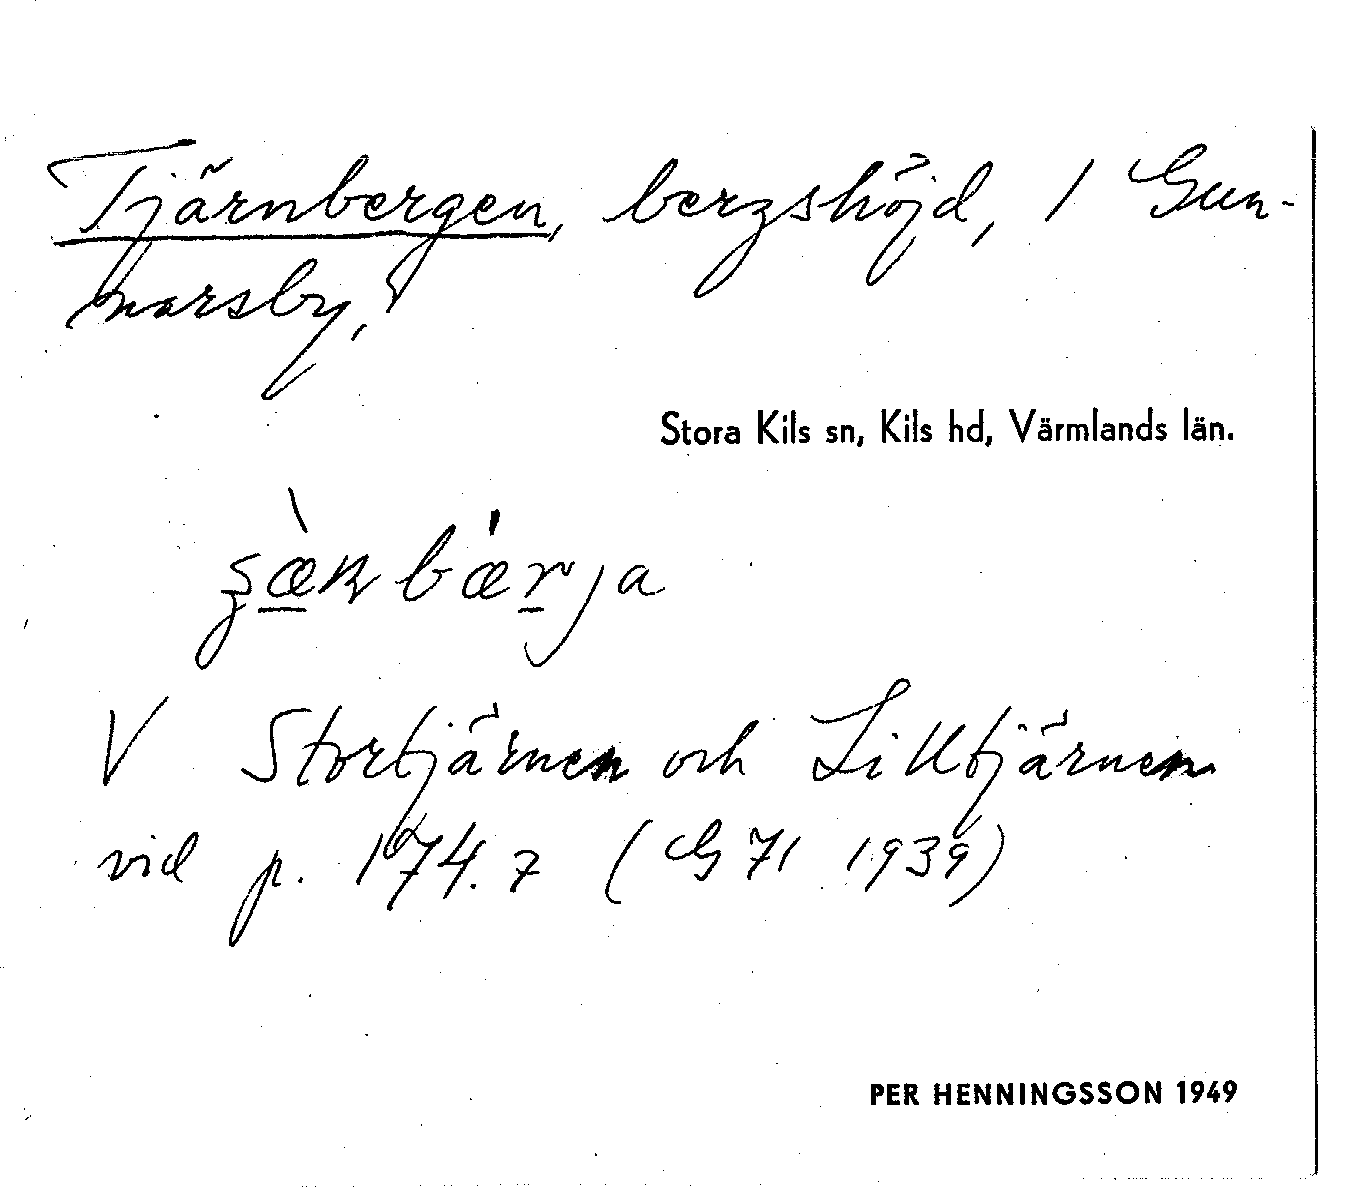 Tjärnbergen, bergshöjd, 1 Gun-
narsby,
Stora Kils sn, Kils hd, Värmlands län.
V Stortjärnen och Lilltjärnen
vid p. 174.7 (G 71 1939)
PER HENNINGSSON 1949